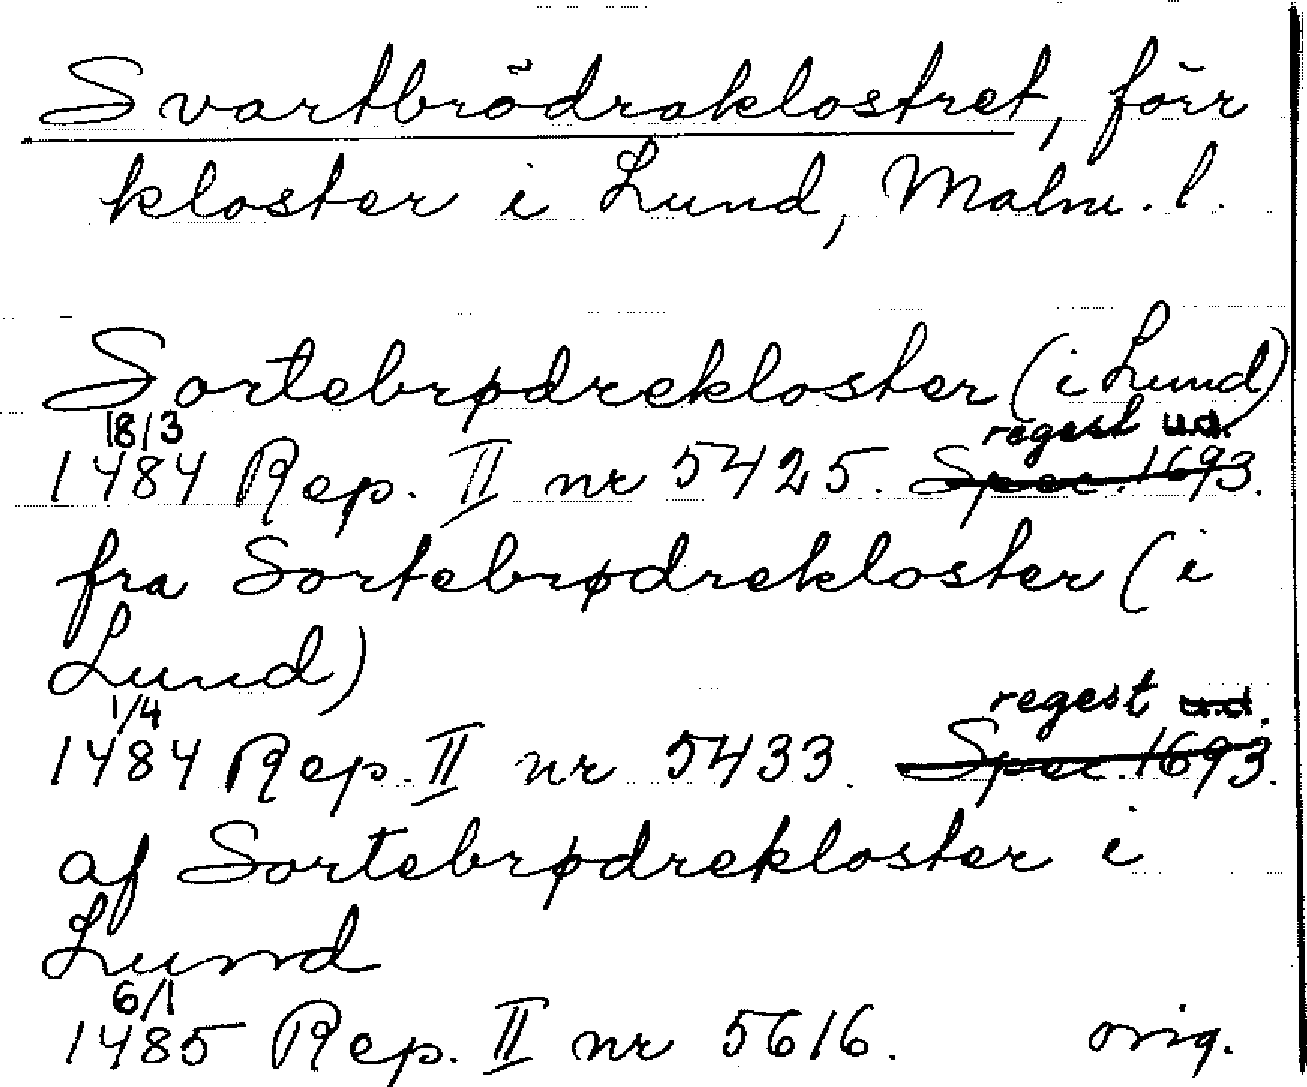 Svartbrödraklostret, förr
kloster i Lund, Malm. l.
Sortebrødrekloster (i Lund)
18/3 regest u.d.
1484 Rep. II nr 5425. Spec. 1693.
fra Sortebrødrekloster (i
Lund)
1/4 regest u.d.
1484 Rep. II nr 5433. Spec. 1693.
af Sortebrødrekloster i
Lund
6/1
1485 Rep. II nr 5616. orig.